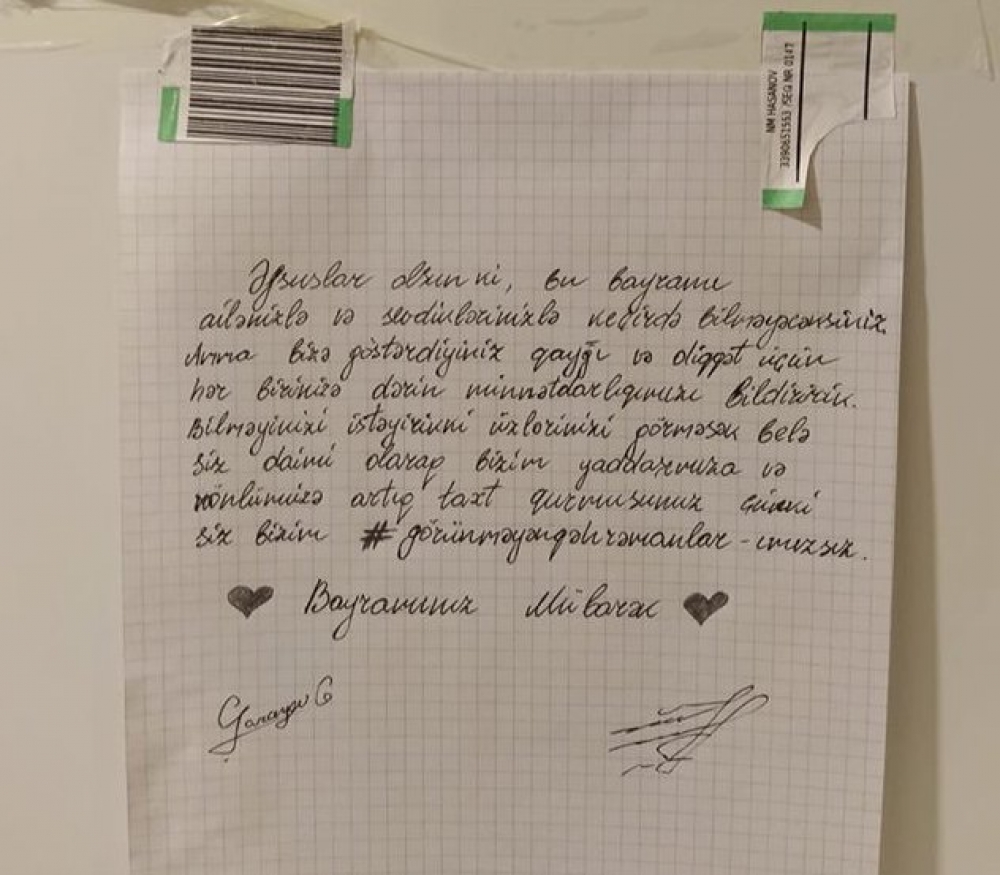 NM HASANOV
3390651553 /SEQ NR 0147
Əfsuslar olsun ki, bu bayramı
ailənizlə və sevdiklərinizlə keçirdə bilməyəcəksiniz.
Amma bizə göstərdiyiniz qayğı və diqqət üçün
hər birinizə dərin minnətdarlığımızı bildiririk.
Bilməyinizi istəyirikki üzlərinizi görməsək belə
siz daimi olaraq bizim yaddaşımıza və
könlümüzə artıq taxt qurmusunuz çünki
siz bizim #görünməyənqəhrəmanlar-ımızsız.
Bayramınız Mübarək
Qarayev G